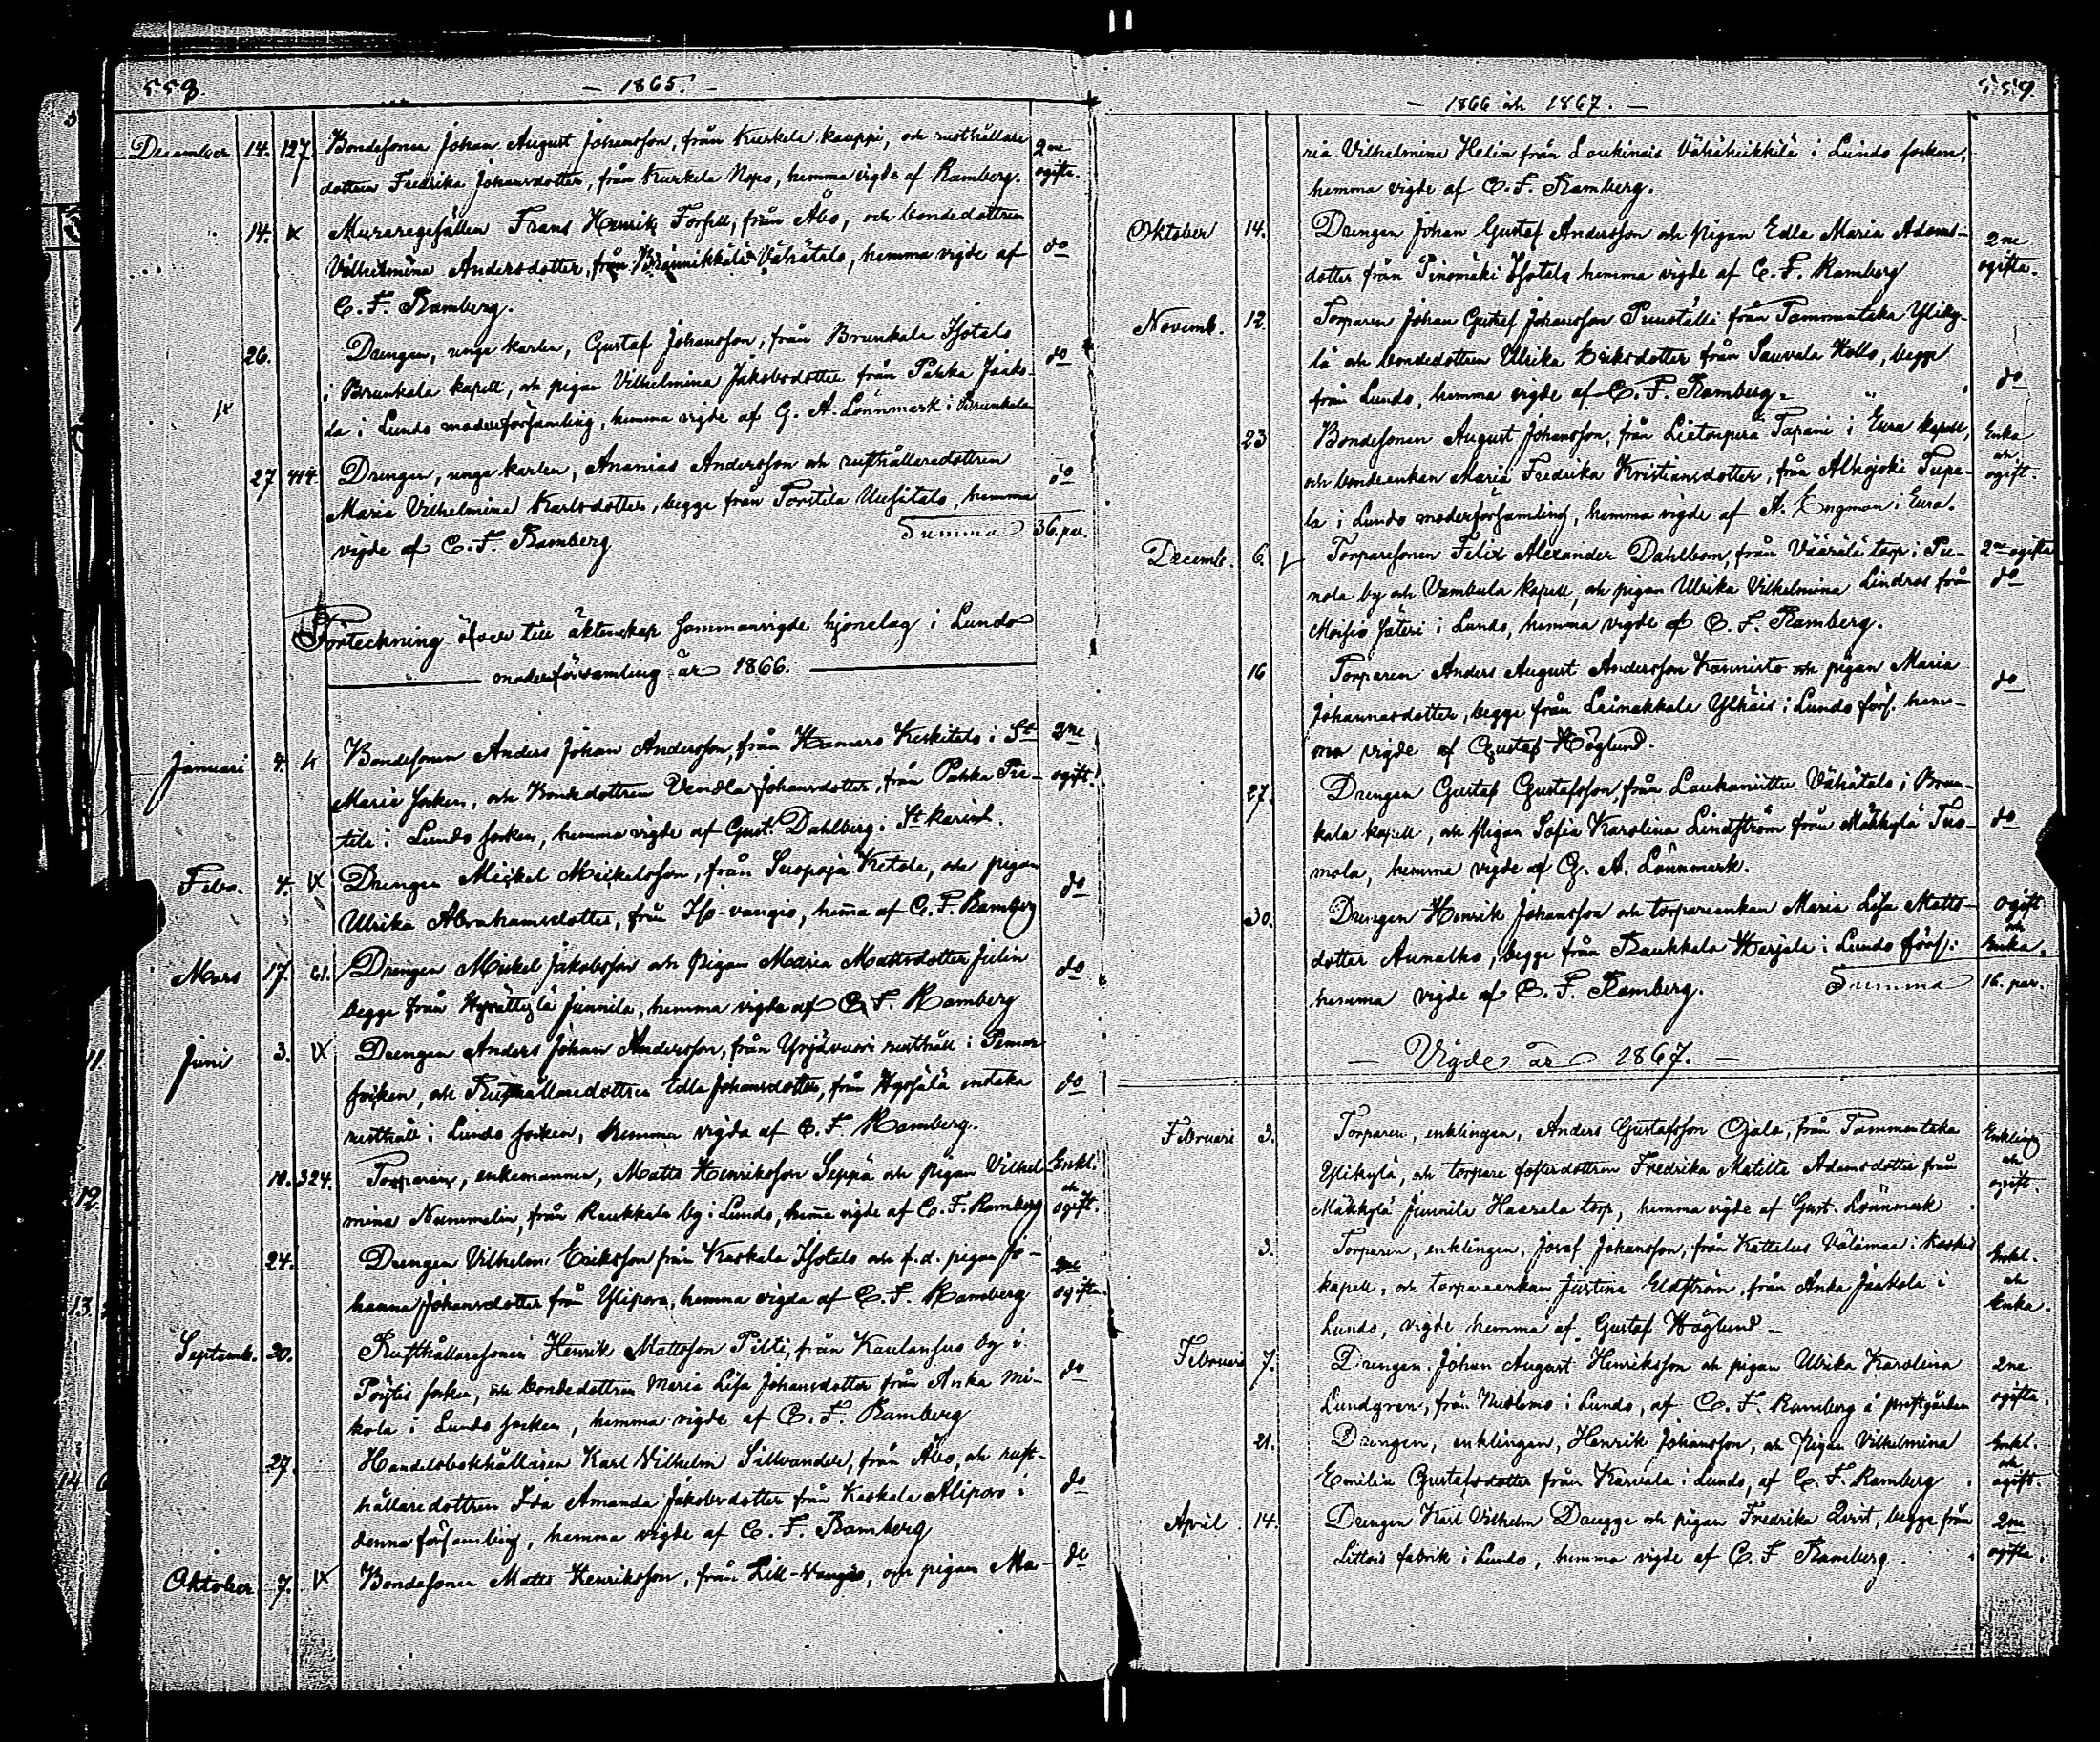 558.
— 1865. —
December 14. 127. Bondesonen Johan August Johansson, från Kurkela Kauppi, och rusthållare 2ne
dottren Fredrika Johansdotter, från Kurkela Nepo, hemma vigde af Ramberg. ogifta.
14. Muraregesällen Frans Henrik Forsell, från Åbo, och bondedottren
Vilhelmina Andersdotter, från Vähätalo, hemma vigde af do
C. F. Ramberg.
26. Drengen, unge karlen, Gustaf Johansson, från Brunkala Isotalo do
i Brunkala kapell, och pigan Vilhelmina Jakobsdotter från Pahka Jaako-
la i Lundo moderförsamling, hemma vigde af G. A. Lönnmark i Brunkala
27 414. Drengen, unge karlen, Ananias Andersson och rusthållaredottren do
Maria Vilhelmina Karlsdotter, begge från Torstila Uusitalo, hemma
vigde af C. F. Ramberg Summa 36. par.
Förteckning öfver till äktenskap sammanvigde hjonelag i Lundo
moderförsamling år 1866.
Januari 4. Bondesonen Anders Johan Andersson, från Hamaro Keskitalo i St 2ne
Marie socken, och bondedottren Vendla Johansdotter, från Pahka Prie- ogift.
tila i Lundo socken, hemma vigde af Gust. Dahlberg i St Karins.
Febr. 4. Drengen Mickel Mickelsson, från Suopoja Ketola, och pigan do
Ulrika Abrahamsdotter, från Iso-vangio, hema af C. F. Ramberg
Mars 17. 61. Drengen Mickel Jakobsson och pigan Maria Mattsdotter Julin do
begge från Junnila, hemma vigde af C. F. Ramberg
Juni 3. Drengen Anders Johan Andersson, från Yrjävuori rusthåll i Pemar
socken, och Rusthållaredottren Edla Johansdotter, från Hypjälä entaka do
rusthåll i Lundo socken, hemma vigda af C. F. Ramberg.
10. 324. Torparen, enkemannen, Matts Henriksson Seppä och pigan Vilhel- Enkl.
mina Nummelin, från Raukkala by i Lundo, hema vigde af C. F. Ramberg och ogift.
24. Drengen Vilhelm Eriksson från Kaskala Isotalo och f.d. pigan Jo- 2ne
hanna Johansdotter från Ylipora, hemma vigda af C. F. Ramberg ogifta.
Septemb. 20. Rusthållaresonen Henrik Mattsson Pilti, från Kaulanperä by i
Pöytis socken, och bondedottren Maria Lisa Johansdotter från Anka Mi- do
kola i Lundo socken, hemma vigde af C. F. Ramberg
27. Handelsbokhållaren Karl Vilhelm Sillvander, från Åbo, och rust-
hållaredottren Ida Amanda Jakobsdotter från Kaskala Alipora i do
denna församling, hemma vigde af C. F. Ramberg
Oktober 7. Bondesonen Matts Henriksson, från Lill-Vangio, och pigan Ma- do
559.
— 1866 och 1867. —
ria Vilhelmina Helin från Loukinais Vähäheikkilä i Lundo socken,
hemma vigde af C. F. Ramberg.
Oktober 14. Drengen Johan Gustaf Andersson och pigan Edla Maria Adams- 2ne
dotter från Pinomäki Isotalo, hemma vigde af C. F. Ramberg ogifta.
Novemb. 12. Torparen Johan Gustaf Johansson Punotalli från Tammentaka Yliky-
lä och bondedottren Ulrika Eriksdotter från Sauvala Hollo, begge
från Lundo, hemma vigde af C. F. Ramberg. do
23 Bondesonen August Johansson, från Lietonperä Tapani i Eura kapell, Enka
och bondeenkan Maria Fredrika Kristiansdotter, från Alhojoki Tupa- och ogift.
la i Lundo moderförsamling, hemma vigde af A. Engman i Eura.
Decemb. 6. Torparesonen Felix Alexander Dahlbom, från Väärälä torp i Pu- 2ne ogifta
nola by och Vambula kapell, och pigan Ulrika Vilhelmina Lindros från do
Moisio säteri i Lundo, hemma vigde af C. F. Ramberg.
16 Torparen Anders August Andersson Kannisto och pigan Maria do
Johannesdotter, begge från Leinakkala Ylhäis i Lundo förs. hem-
ma vigde af Gustaf Höglund.
27. Drengen Gustaf Gustafsson, från Laukaniittu Vähätalo i Brun-
kala kapell, och pigan Sofia Karolina Lindström från Mäkkylä Tuo- do
mola, hemma vigde af G. A. Lönnmark.
30. Drengen Henrik Johansson och torpareenkan Maria Lisa Matts- ogift
dotter Aunalho, begge från Raukkala Harjala i Lundo förs. och Enka.
hemma vigde af C. F. Ramberg. Summa 16. par.
— Vigde år 1867. —
Februari 3. Torparen, enklingen, Anders Gustafsson Ojala, från Tammentaka Enkling
Ylikylä, och torpare fosterdottren Fredrika Matilta Adamsdotter från och ogift.
Mäkkylä Junnila Haarala torp, hemma vigde af Gust. Lönnmark
3. Torparen, enklingen, Josef Johansson, från Kattelus Välimaa i Koskis Enkl.
kapell, och torpareenkan Justina Eldström, från Anka Jaakola i och Enka.
Lundo, vigde hemma af Gustaf Höglund —
Februari 7. Drengen Johan August Henriksson och pigan Ulrika Karolina 2ne
Lundgren, från Nuolemo i Lundo, af C. F. Ramberg å prestgården ogifta.
21. Drengen, enklingen, Henrik Johansson, och pigan Vilhelmina Enkl.
Emilia Gustafsdotter från Karvala i Lundo, af C. F. Ramberg och ogift.
April 14. Drengen Karl Vilhelm Daugge och pigan Fredrika Qvist, begge från 2ne
Littois fabrik i Lundo, hemma vigde af C. F. Ramberg. ogifta.